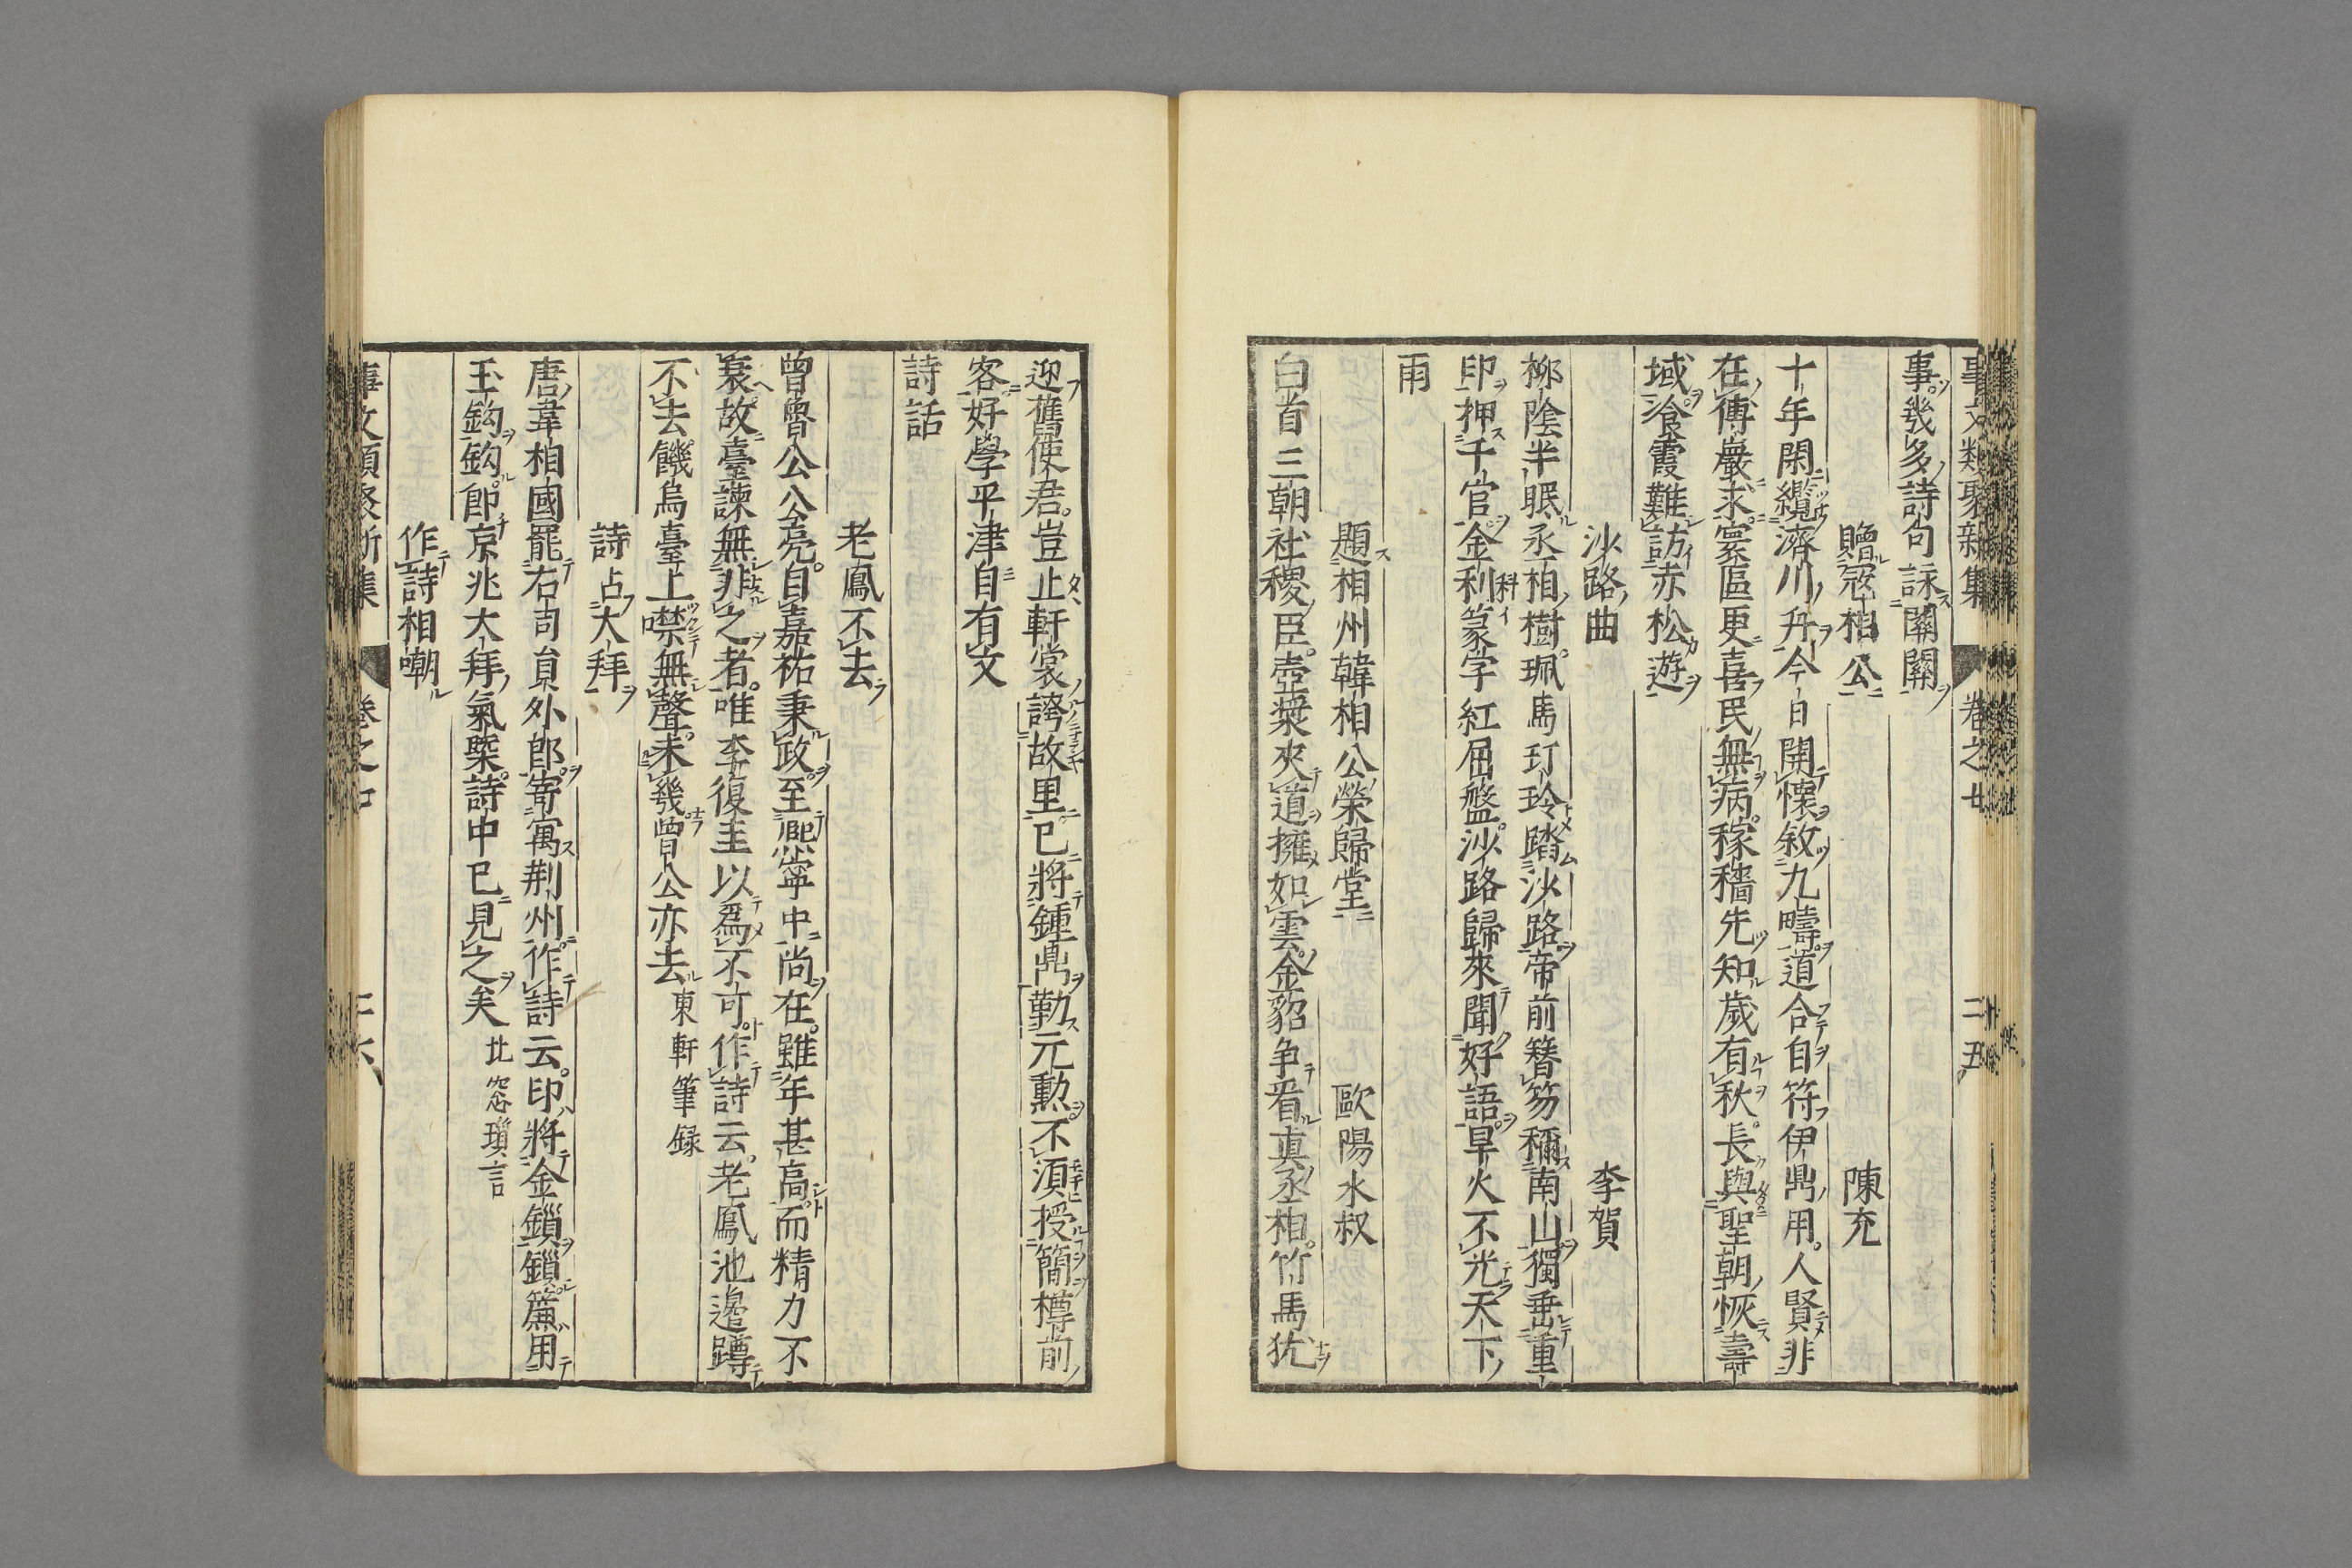 事文類聚新集 卷之七 二十五
事幾多詩句詠關關
贈寇相公 陳充
十年閑纜濟川舟今日開懷敘九疇道合自符伊鼎用人賢非
在傅巖求寰區更喜民無病稼穡先知歲有秋長與聖朝恢壽
域飡霞難訪赤松遊
沙路曲 李賀
柳陰半眠丞相樹珮馬玎玲踏沙路帝前簪笏稱南山獨垂重
印押千官金利篆字紅屈盤沙路歸來聞好語旱火不光天下
雨
題相州韓相公榮歸堂 歐陽永叔
白首三朝社稷臣壺漿夾道擁如雲金貂争看真丞相竹馬犹
迎舊使君豈止軒裳誇故里已將鍾鼎勒元勲不須授簡樽前
客好學平津自有文
詩話
老鳳不去
曾魯公公亮自嘉祐秉政至熈寧中尚在雖年甚高而精力不
衰故臺諫無非之者唯李復圭以爲不可作詩云老鳳池邊蹲
不去饑烏臺上噤無聲未幾曾公亦去 東軒筆録
詩占大拜
唐韋相國罷右司貟外郎寄寓荆州作詩云印將金鎖鎖簾用
玉鈎鈎卽京兆大拜氣槩詩中已見之矣 北窓瑣言
作詩相嘲
事文類聚新集 卷之七